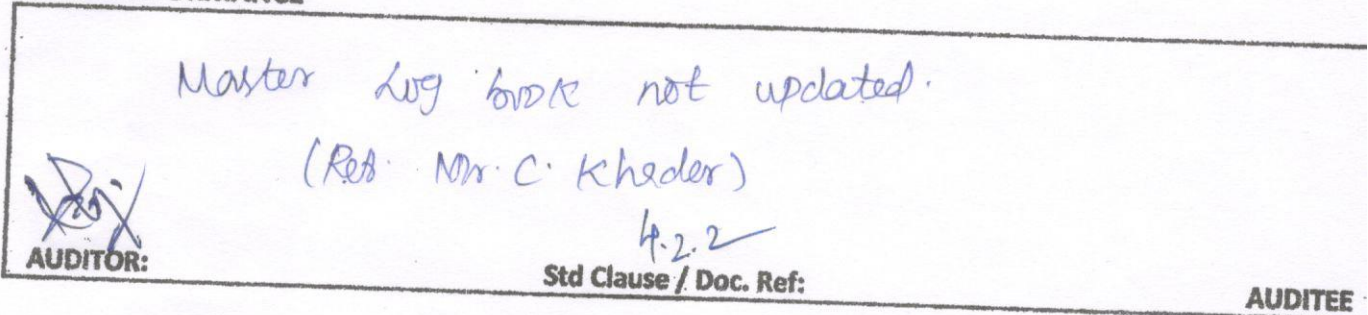 Master Log book not updated.
(Ref. Mr. C. Kheder)
4.2.2
AUDITOR:
Std Clause / Doc. Ref:
AUDITEE